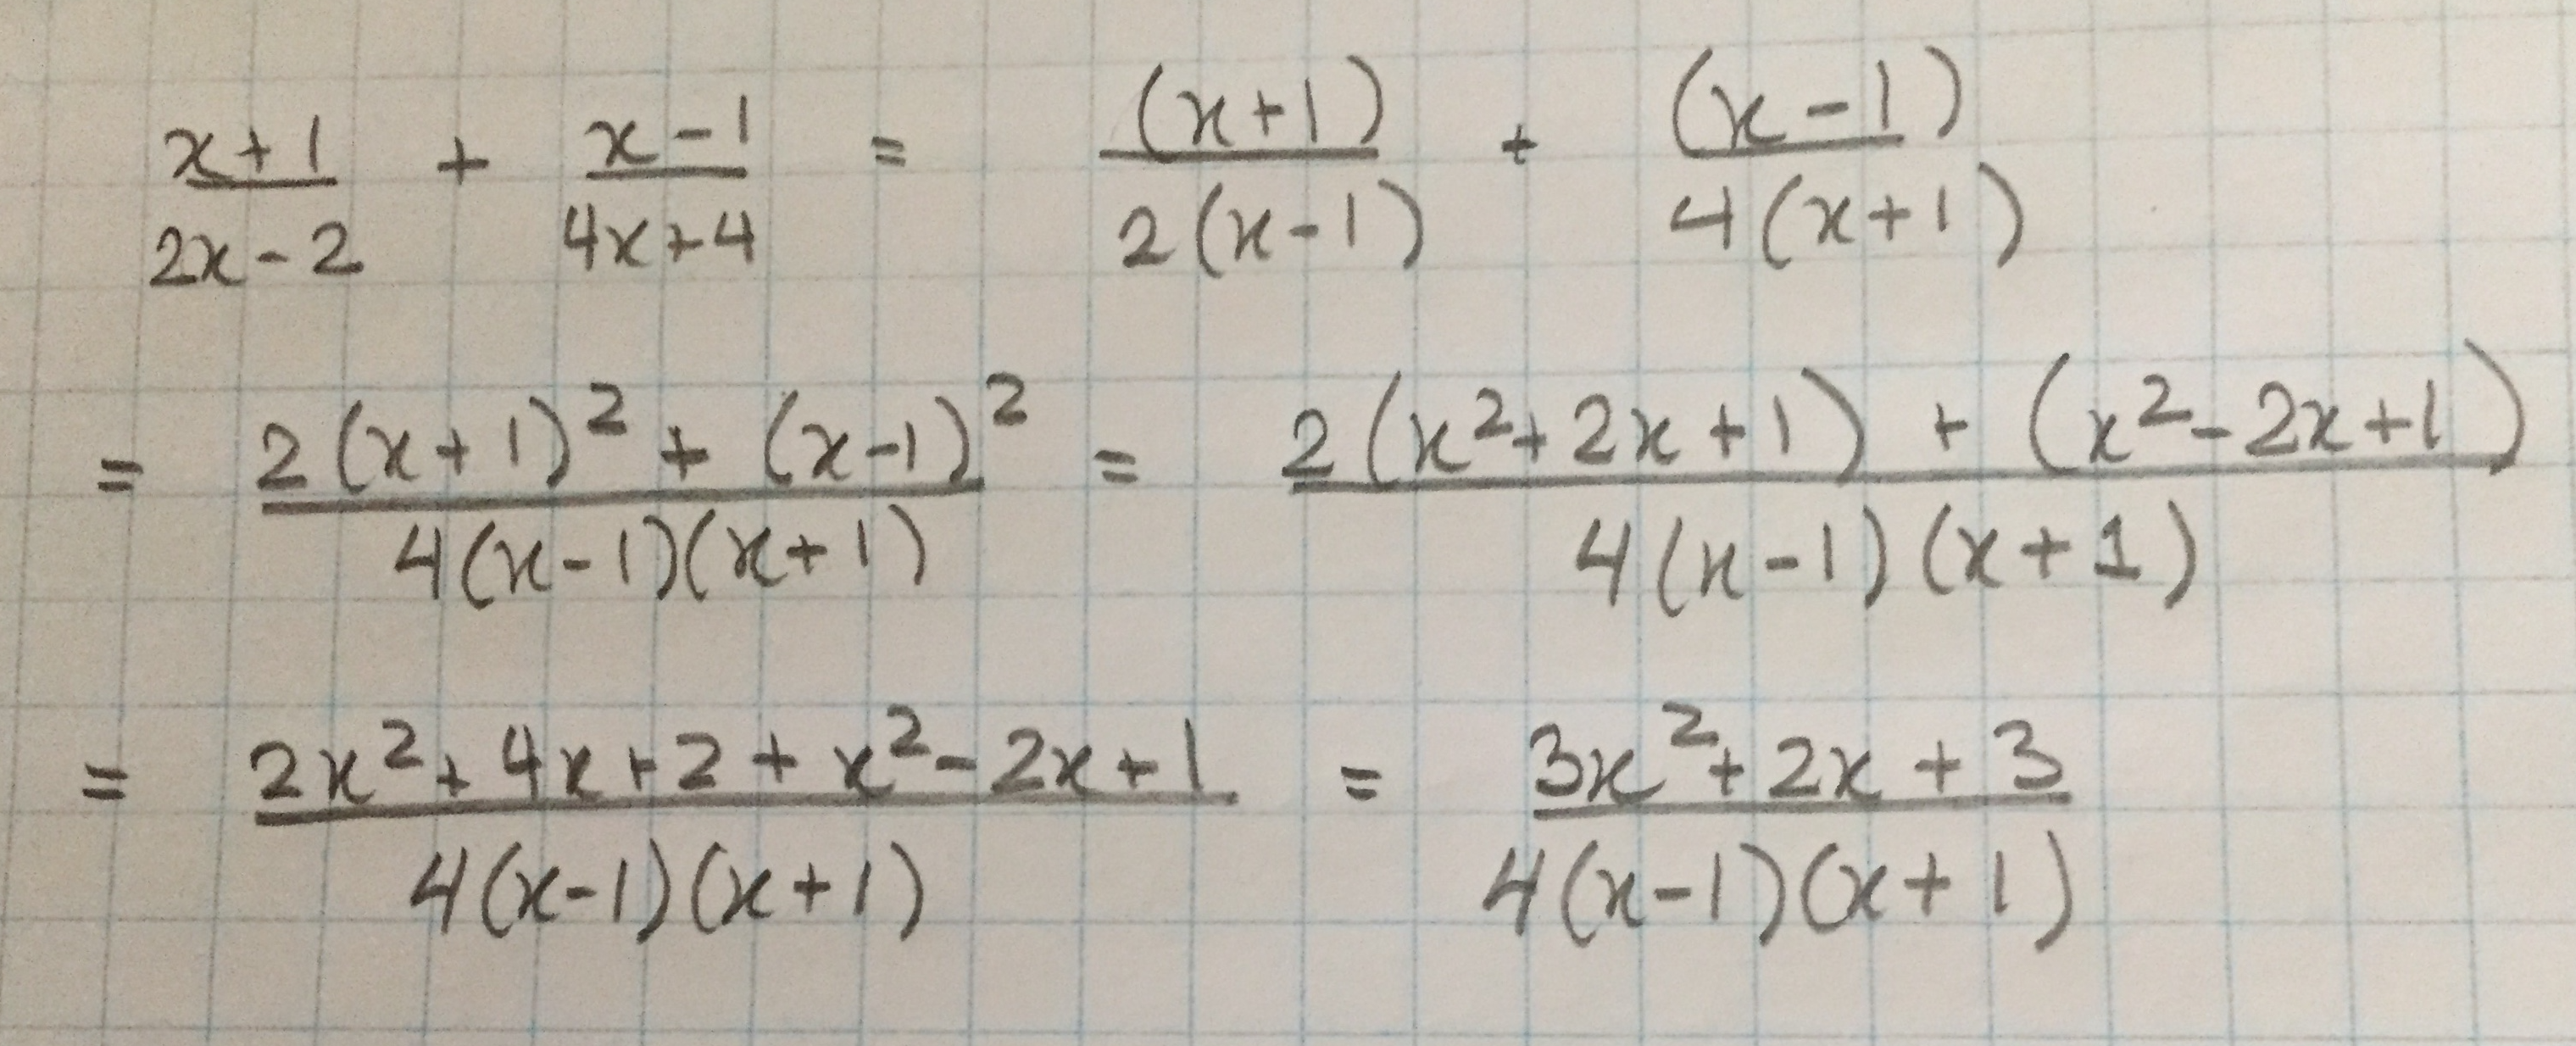 (x+1)/(2x-2) + (x-1)/(4x+4) = (x+1)/(2(x-1)) + (x-1)/(4(x+1))
= (2(x+1)² + (x-1)²)/(4(x-1)(x+1)) = (2(x²+2x+1) + (x²-2x+1))/(4(x-1)(x+1))
= (2x²+4x+2+x²-2x+1)/(4(x-1)(x+1)) = (3x²+2x+3)/(4(x-1)(x+1))